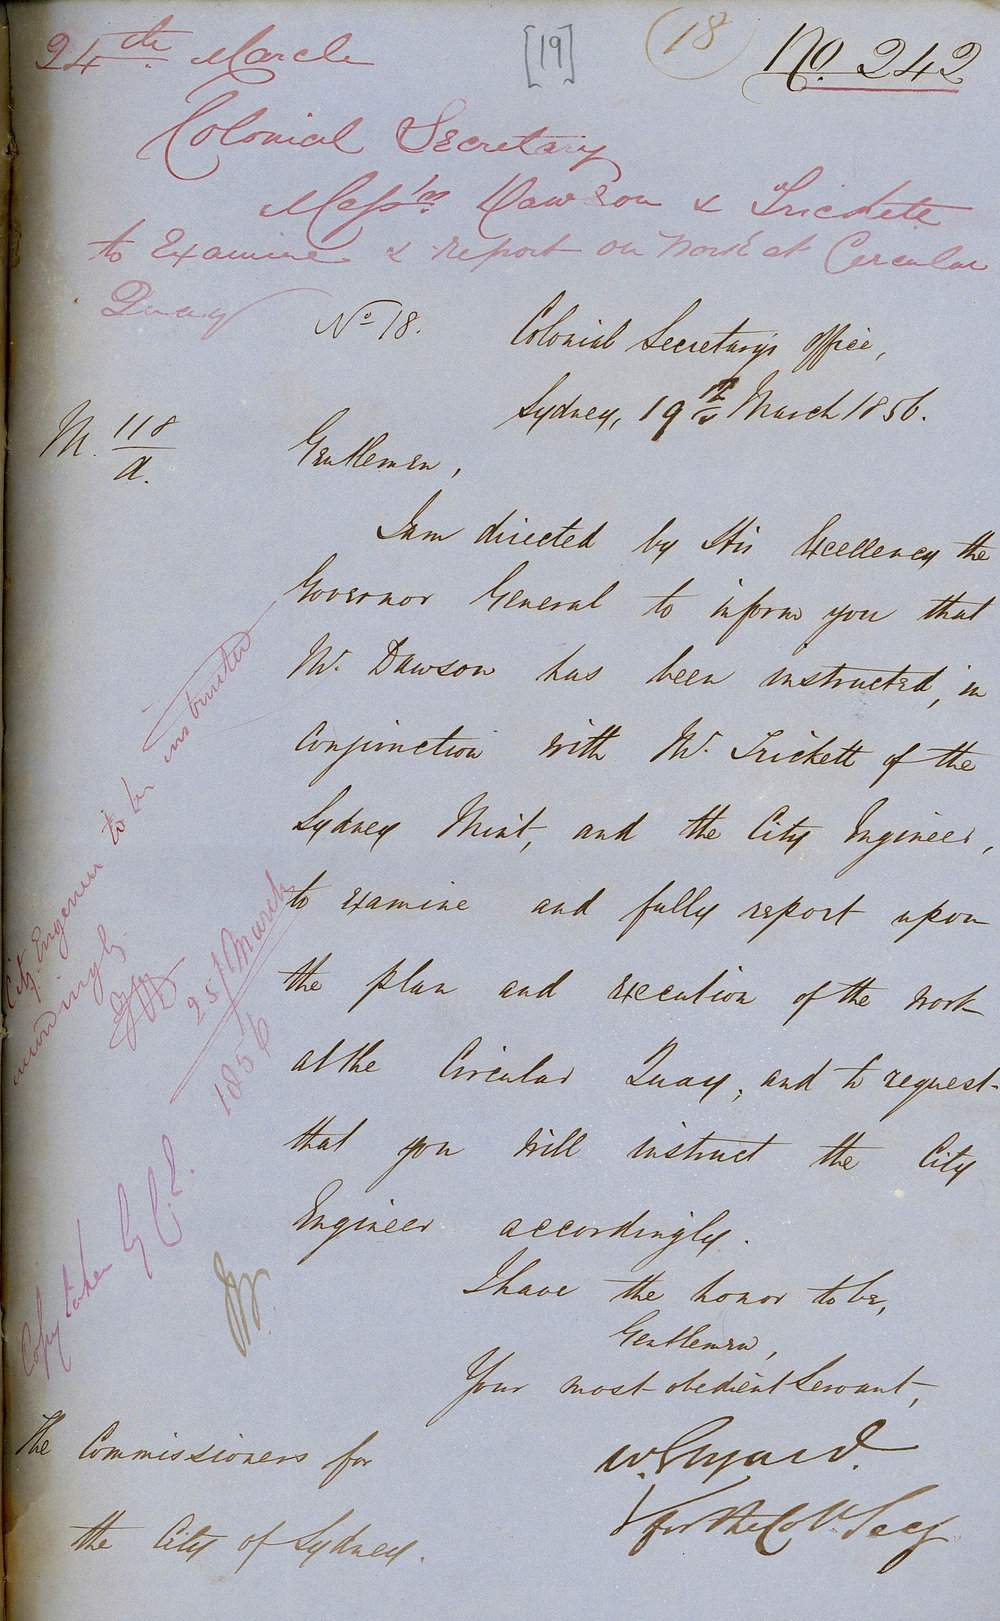 24th. March
[19]
18
No. 242
Colonial Secretary
Messrs. Dawson & Trickete
to Examine & report on Work at Circular
Quay
No 18.
Colonial Secretary's Office,
Sydney, 19th March 1856.
M. 118
A.
Gentlemen,
I am directed by His Excellency the
Governor General to inform you that
Mr. Dawson has been instructed, in
conjunction with Mr. Trickett of the
Sydney Mint, and the City Engineer,
to examine and fully report upon
the plan and execution of the work
at the Circular Quay, and to request
that you will instruct the City
Engineer accordingly.
I have the honor to be,
Gentlemen,
Your most obedient Servant,
W. Elyard.
for the Col. Secy
The Commissioners for
the City of Sydney.
City Engineer to be instructed
accordingly
25/ March
1856
Copy taken by C.E.